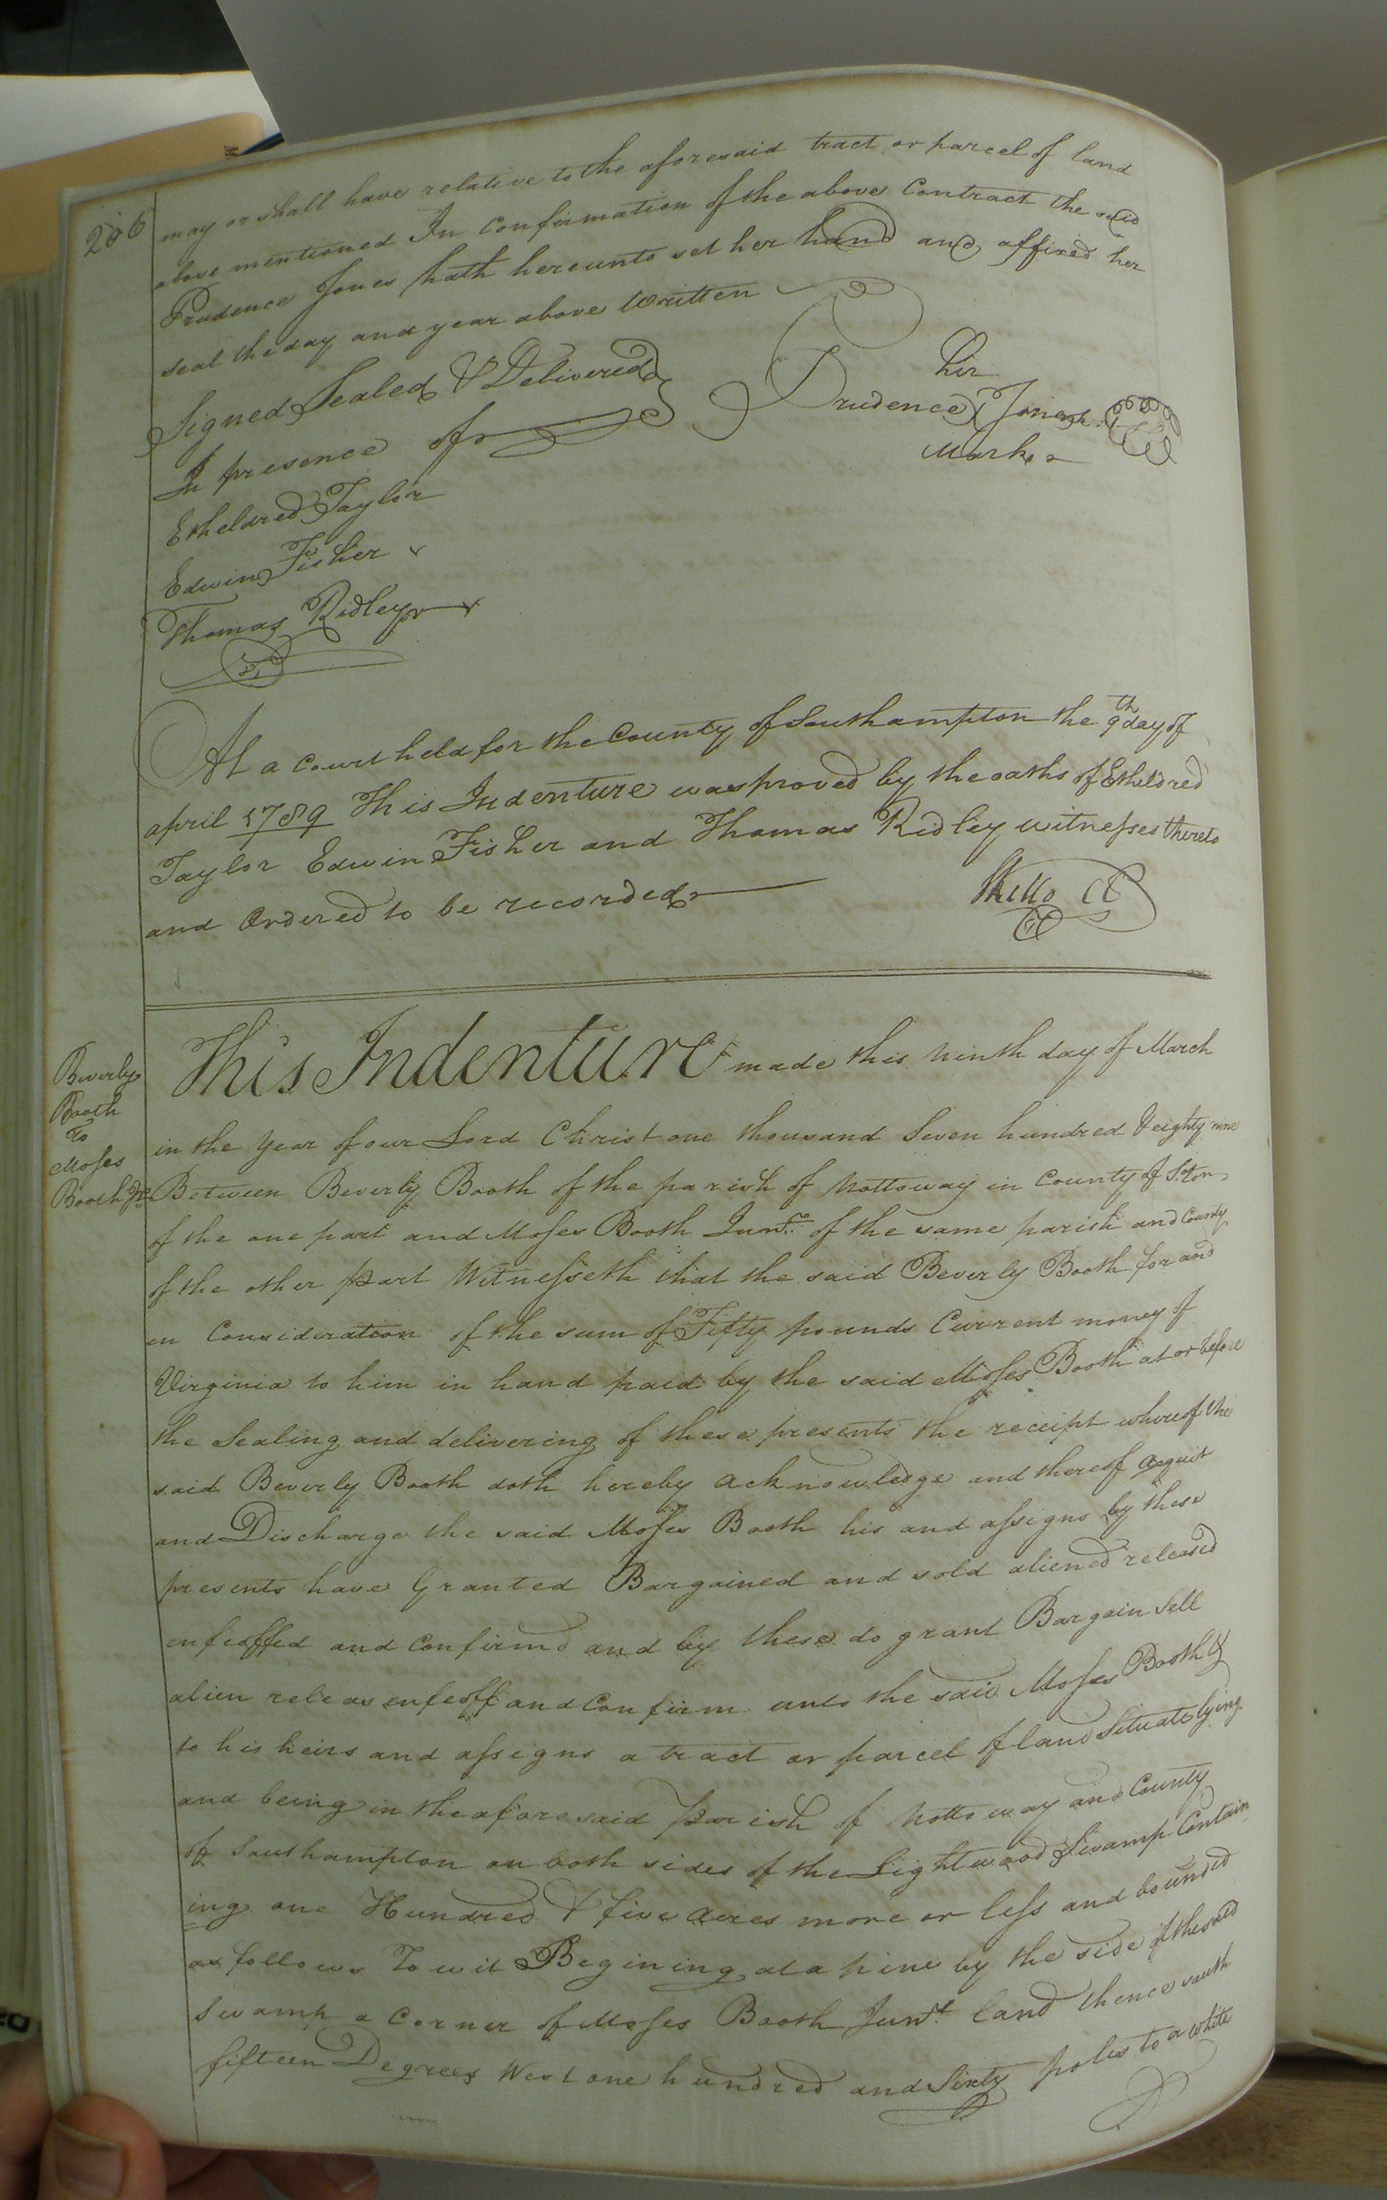 206
may or shall have relative to the aforesaid tract or parcel of land
above mentioned In confirmation of the above Contract the said
Prudence Jones hath hereunto set her hand and affixed her
seal the day and year above written
Signed Sealed & Delivered
In presence of
her
Prudence X Jones
Mark
Etheldred Taylor
Edwin Fisher
Thomas Ridley
At a Court held for the County of Southampton the 9th day of
april 1789 This Indenture was proved by the oaths of Etheldred
Taylor Edwin Fisher and Thomas Ridley witnesses thereto
and Ordered to be recorded
CC
Beverly
Booth
To
Moses
Booth Jr.
This Indenture made this ninth day of March
in the year of our Lord Christ one thousand Seven hundred & eighty nine
Between Beverly Booth of the parish of Nottoway in County of S.ton
of the one part and Moses Booth Junr. of the same parish and County
of the other part Witnesseth that the said Beverly Booth for and
in Consideration of the sum of Fifty pounds Current money of
Virginia to him in hand paid by the said Moses Booth at or before
the Sealing and delivering of these presents the receipt whereof the
said Beverly Booth doth hereby acknowledge and thereof acquit
and Discharge the said Moses Booth his and assigns by these
presents have Granted Bargained and sold aliened released
enfeoffed and Confirmd and by these do grant Bargain Sell
alien releas enfeoff and Confirm unto the said Moses Booth &
to his heirs and assigns a tract or parcel of land Situate lying
and being in the aforesaid parish of Nottoway and County
of Southampton on both sides of the Lightwood Swamp Contain
ing one Hundred & five acres more or less and bounded
as follows To wit Begining at a pine by the side of the said
Swamp a Corner of Moses Booth Junr. land thence south
fifteen Degrees West one hundred and Sixty poles to a white